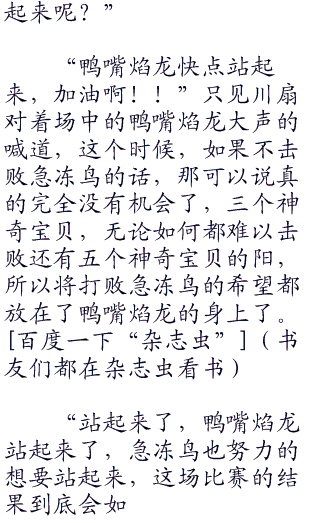 起来呢？”
“鸭嘴焰龙快点站起
来，加油啊！！”只见川扇
对着场中的鸭嘴焰龙大声的
喊道，这个时候，如果不击
败急冻鸟的话，那可以说真
的完全没有机会了，三个神
奇宝贝，无论如何都难以击
败还有五个神奇宝贝的阳，
所以将打败急冻鸟的希望都
放在了鸭嘴焰龙的身上了。
[百度一下“杂志虫”]（书
友们都在杂志虫看书）
“站起来了，鸭嘴焰龙
站起来了，急冻鸟也努力的
想要站起来，这场比赛的结
果到底会如